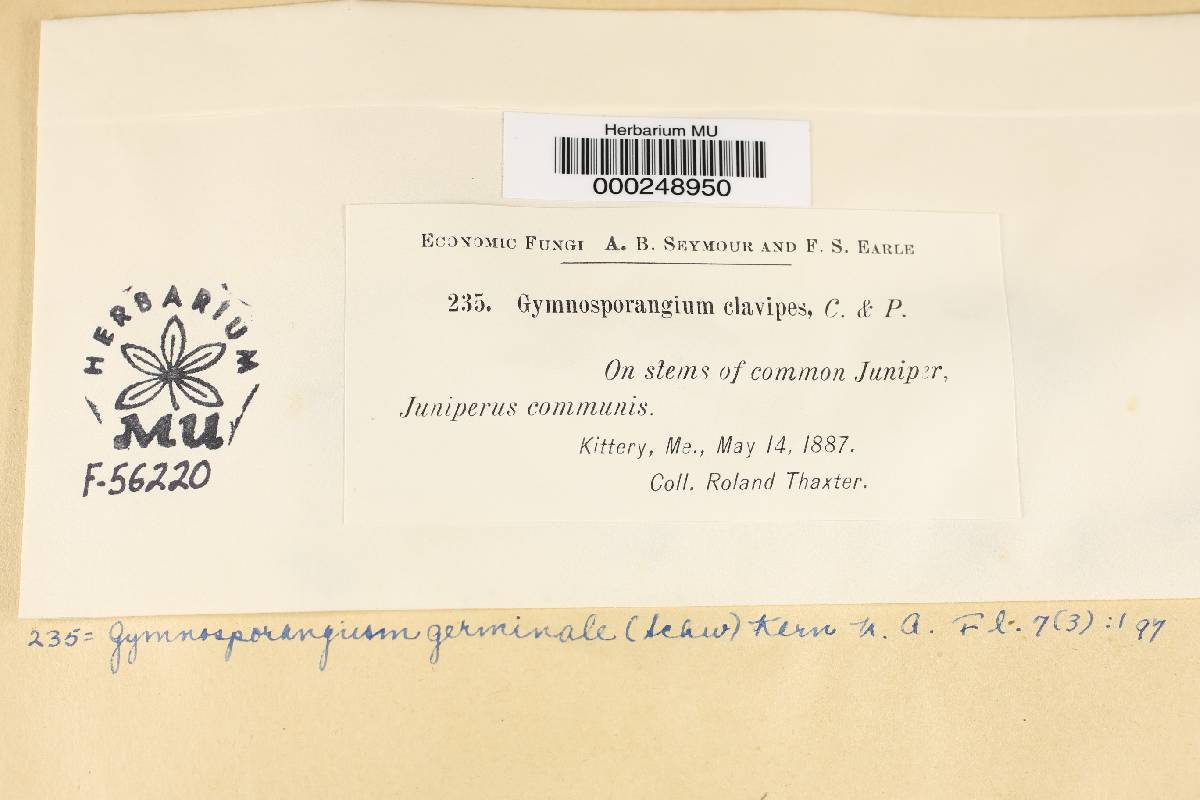 Herbarium MU
000248950
ECONOMIC FUNGI A. B. SEYMOUR AND F. S. EARLE
235. Gymnosporangium clavipes, C. & P.
On stems of common Juniper,
Juniperus communis.
Kittery, Me., May 14, 1887.
Coll. Roland Thaxter.
HERBARIUM
MU
F-56220
235= Gymnosporangium germinale (Schw) Kern N. A. Fl. 7(3):197